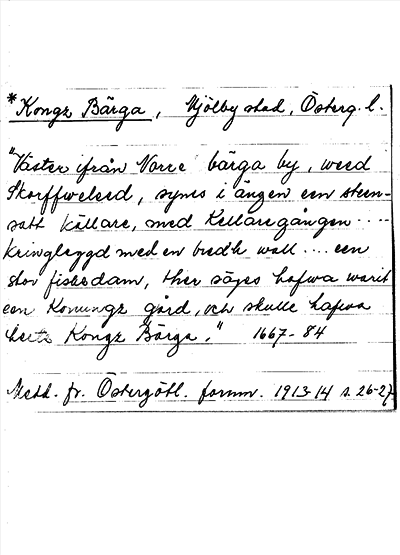 *Kongz Bärga, Mjölby stad, Österg. l.
"Väster ifrån Norre bärga by, weed
Skorffweleed, synes i ängen een steen-
satt källare, med Kellaregången ....
kringlaggd med en bredh wall .... een
stor fiskedam, ther säges hafwa warit
een Konungz gård, och skulle hafwa
heett Kongz Bärga." 1667-84
Medd. fr. Östergötl. fornm. 1913-14 s. 26-27